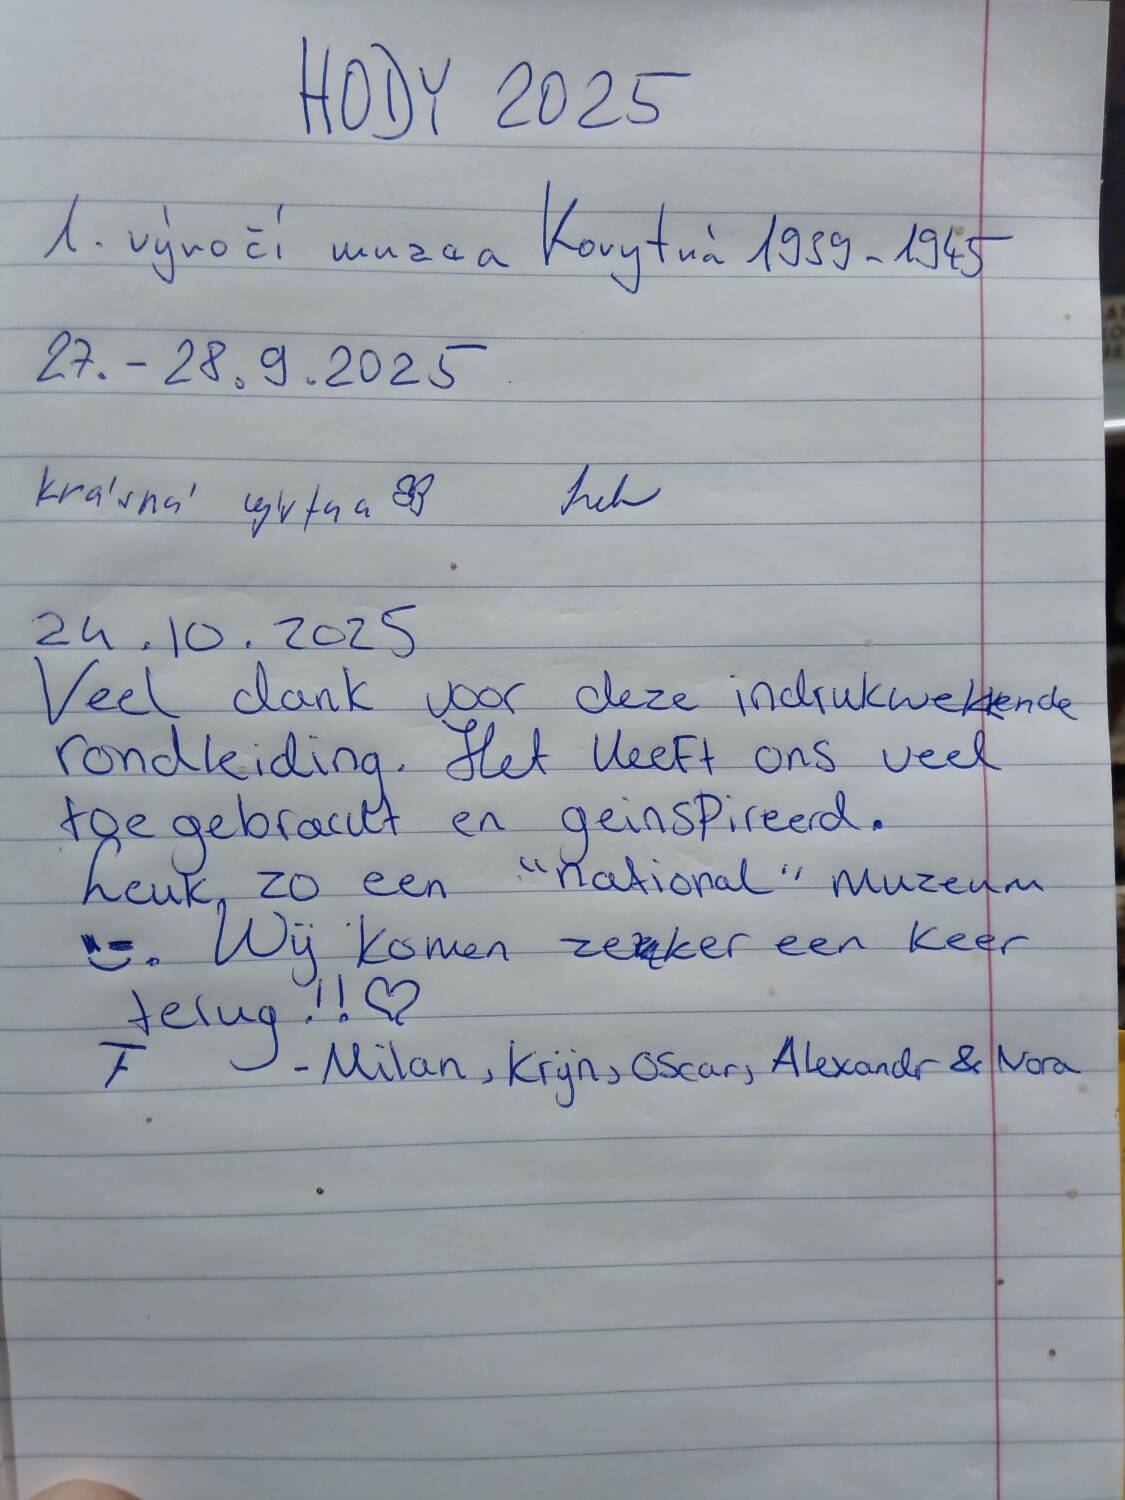 HODY 2025
1. výročí muzea Kovytná 1939-1945
27. - 28. 9. 2025
krásná
24.10.2025
Veel dank voor deze indrukwekkende
rondleiding. Het heeft ons veel
toegebracht en geinspireerd.
Leuk, zo een "national" muzeum
. Wij komen zeker een keer
terug!!♡
- Milan, Krijn, Oscar, Alexandr & Nora